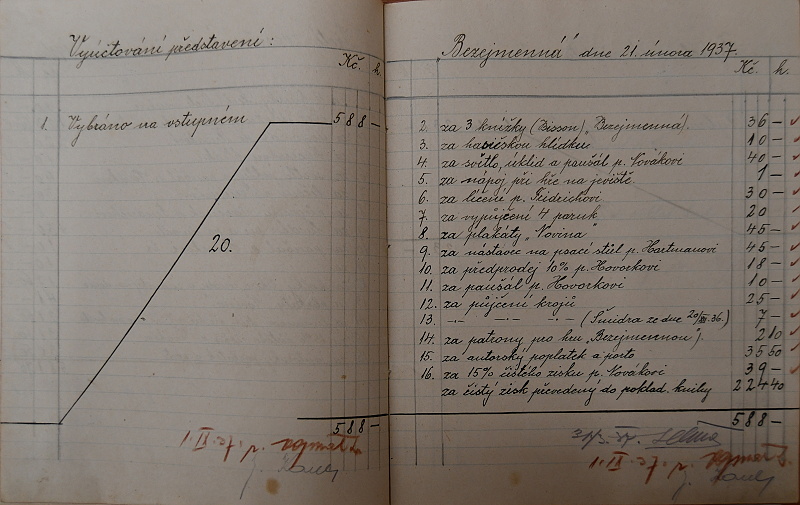 Vyúčtování představení:
Kč. h.
1. Vybráno na vstupném 588 –
20.
588 –
„Bezejmenná" dne 21. února 1937.
Kč. h.
2. za 3 knížky (Bisson) „Bezejmenná". 36 –
3. za hasičskou hlídku 10 –
4. za světlo, úklid a paušál p. Novákovi 40 –
5. za nápoj při hře na jeviště 1 –
6. za líčení p. Fridrichovi 30 –
7. za vypůjčení 4 paruk 20
8. za plakáty „Novina" 45 –
9. za nástavce na psací stůl p. Hartmanovi 45 –
10. za předprodej 10% p. Hovorkovi 18 –
11. za paušál p. Hovorkovi 10 –
12. za půjčení krojů 25 –
13. –·– –·– –·– (Šmidra ze dne 20/XII.36.) 7 –
14. za patrony pro hru „Bezejmennou". 2 10
15. za autorský poplatek a porto 35 50
16. za 15% čistého zisku p. Novákovi 39 –
za čistý zisk převedený do poklad. knihy 224 40
588 –